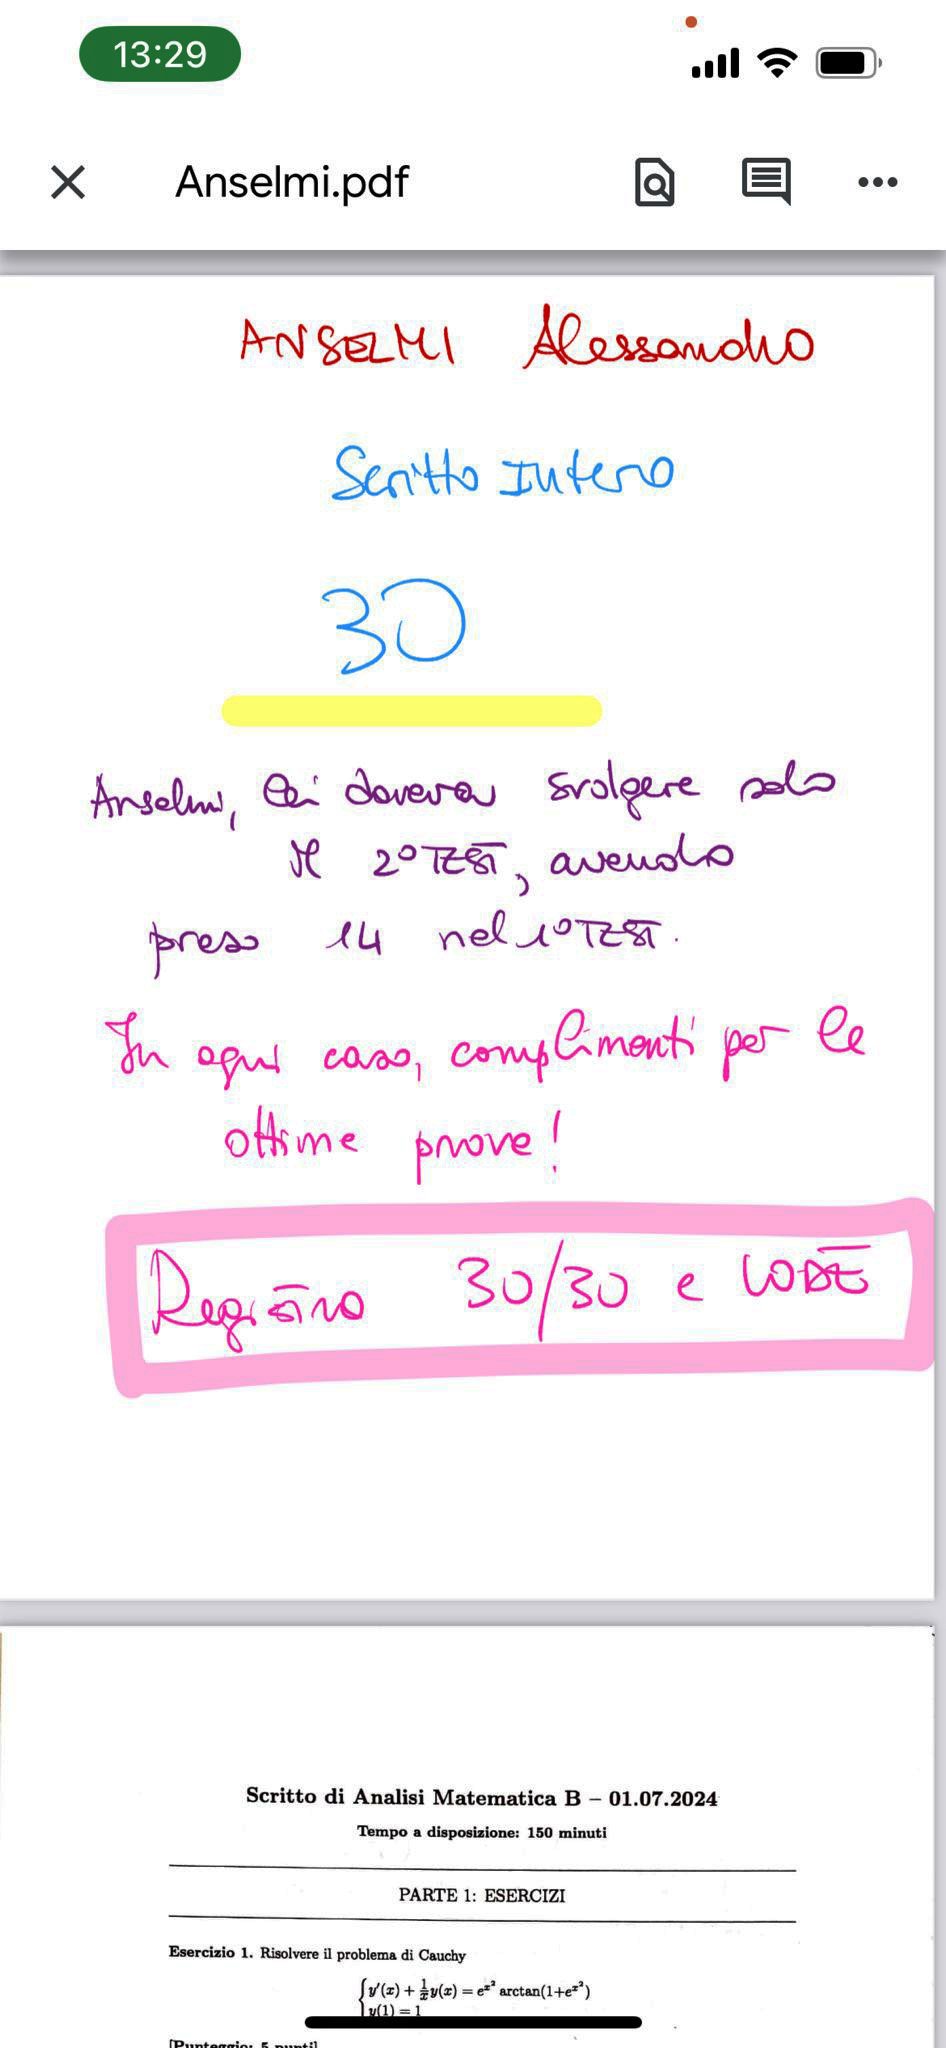 13:29
Anselmi.pdf
ANSELMI Alessandro
Scritto Intero
30
Anselmi, Lei doveva svolgere solo
il 2° TEST, avendo
preso 14 nel 1° TEST.
In ogni caso, complimenti per le
ottime prove!
Registro 30/30 e LODE
Scritto di Analisi Matematica B – 01.07.2024
Tempo a disposizione: 150 minuti
PARTE 1: ESERCIZI
Esercizio 1. Risolvere il problema di Cauchy
y′(x) + 1/x y(x) = e^{x²} arctan(1+e^{x²})
y(1) = 1
[Punteggio: 5 punti]